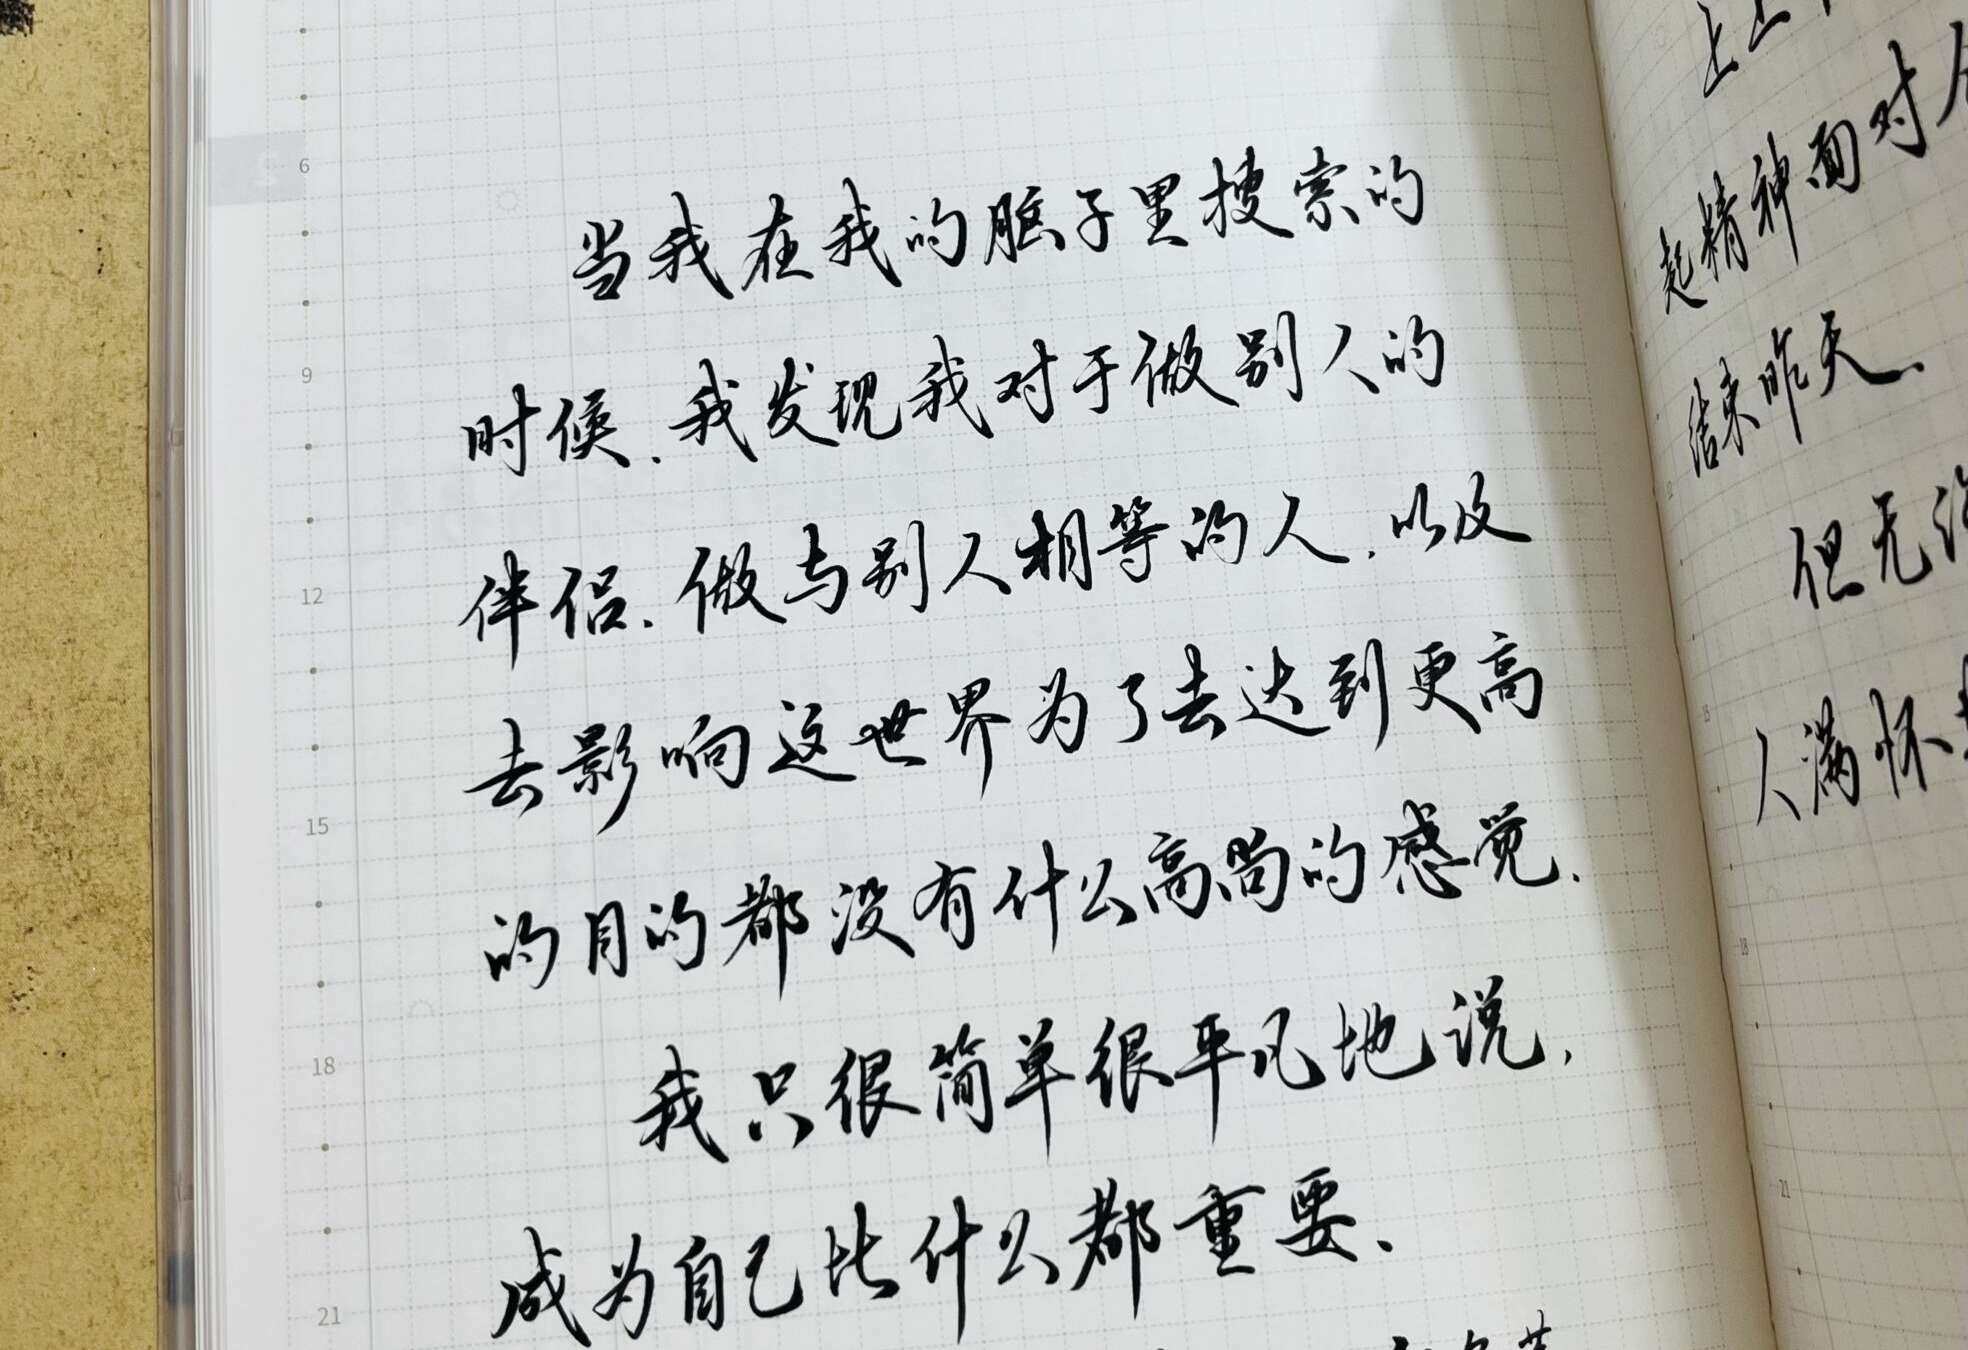 当我在我的脑子里搜索的
时候.我发现我对于做别人的
伴侣.做与别人相等的人.以及
去影响这世界为了去达到更高
的目的都没有什么高尚的感觉.
我只很简单很平凡地说,
成为自己比什么都重要.
起精神面对
结束昨天.
但无论
人满怀
6
9
12
15
18
21